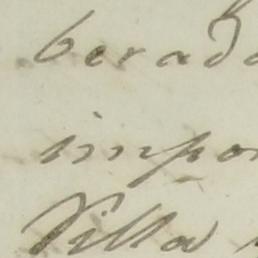 berado
impor
Villa